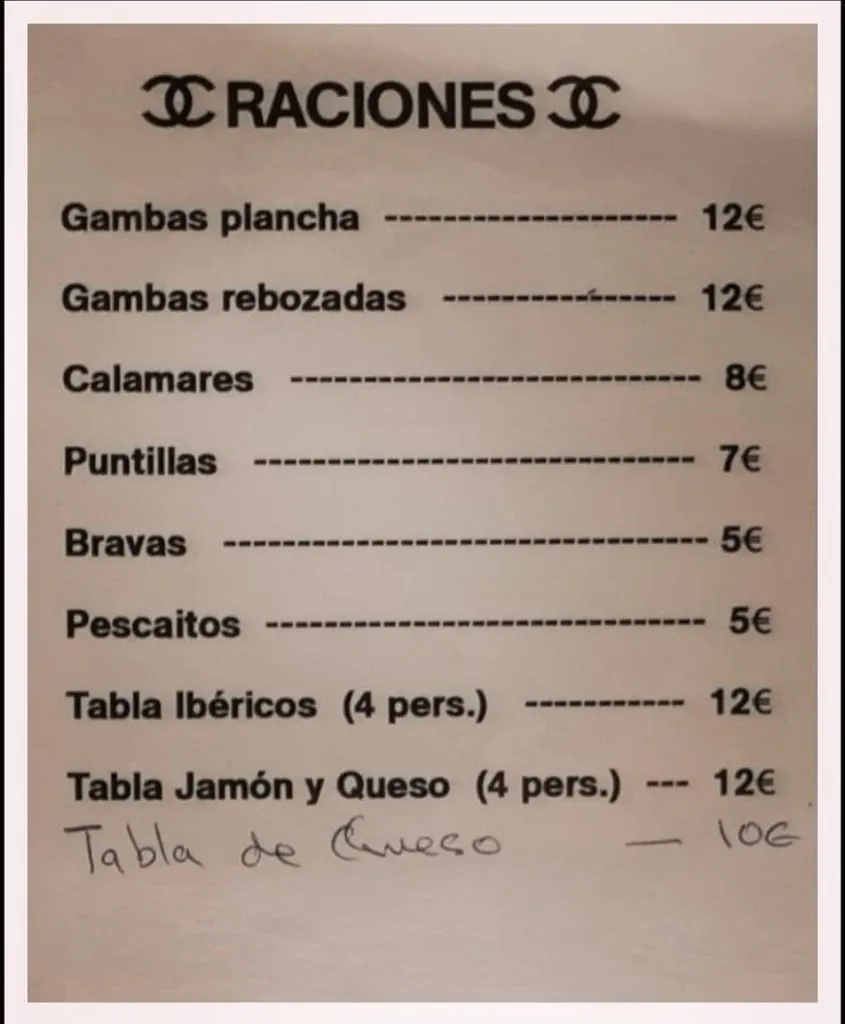 RACIONES
Gambas plancha ------------------- 12€
Gambas rebozadas ---------------- 12€
Calamares ---------------------------- 8€
Puntillas ------------------------------ 7€
Bravas --------------------------------- 5€
Pescaitos ------------------------------ 5€
Tabla Ibéricos (4 pers.) ----------- 12€
Tabla Jamón y Queso (4 pers.) --- 12€
Tabla de Queso — 10€